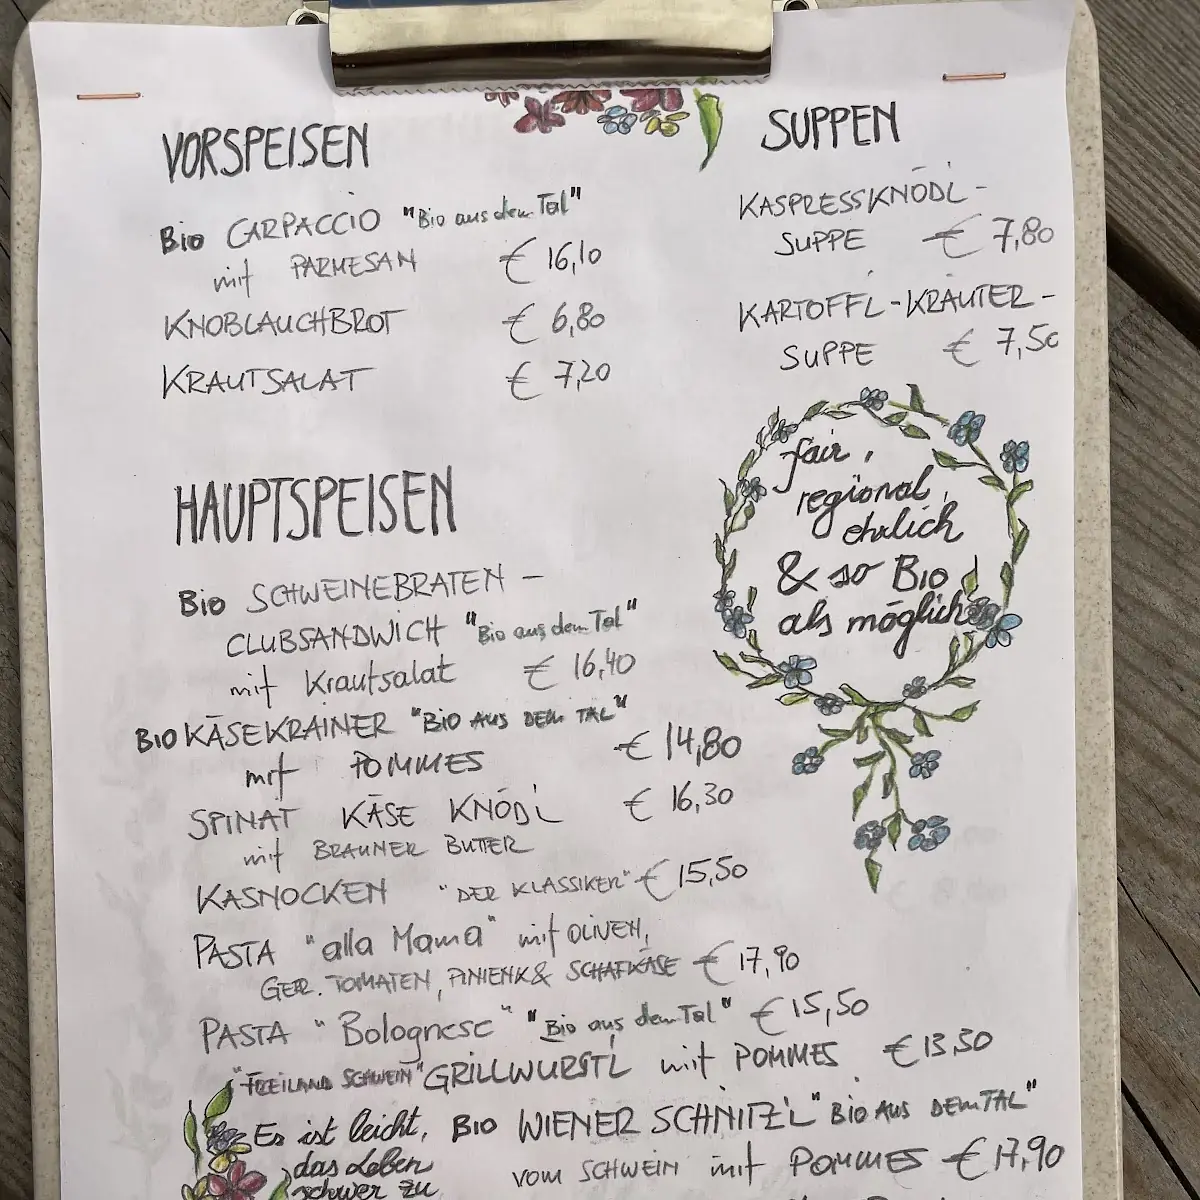 VORSPEISEN
Bio CARPACCIO "Bio aus dem Tal"
mit PARMESAN € 16,10
KNOBLAUCHBROT € 6,80
KRAUTSALAT € 7,20
SUPPEN
KASPRESSKNÖDL-
SUPPE € 7,80
KARTOFFL-KRÄUTER-
SUPPE € 7,50
fair,
regional,
ehrlich
& so Bio
als möglich
HAUPTSPEISEN
Bio SCHWEINEBRATEN-
CLUBSANDWICH "Bio aus dem Tal"
mit Krautsalat € 16,40
BIO KÄSEKRAINER "BIO AUS DEM TAL"
mit POMMES € 14,80
SPINAT KÄSE KNÖDL € 16,30
mit BRAUNER BUTTER
KASNOCKEN "DER KLASSIKER" € 15,50
PASTA "alla Mama" mit OLIVEN,
GETR. TOMATEN, PINIENK & SCHAFKÄSE € 17,90
PASTA "Bolognese" "Bio aus dem Tal" € 15,50
"FREILAND SCHWEIN" GRILLWURSTL mit POMMES € 13,50
Es ist leicht,
das Leben
schwer zu
BIO WIENER SCHNITZ'L "BIO AUS DEM TAL"
VOM SCHWEIN mit POMMES € 17,90